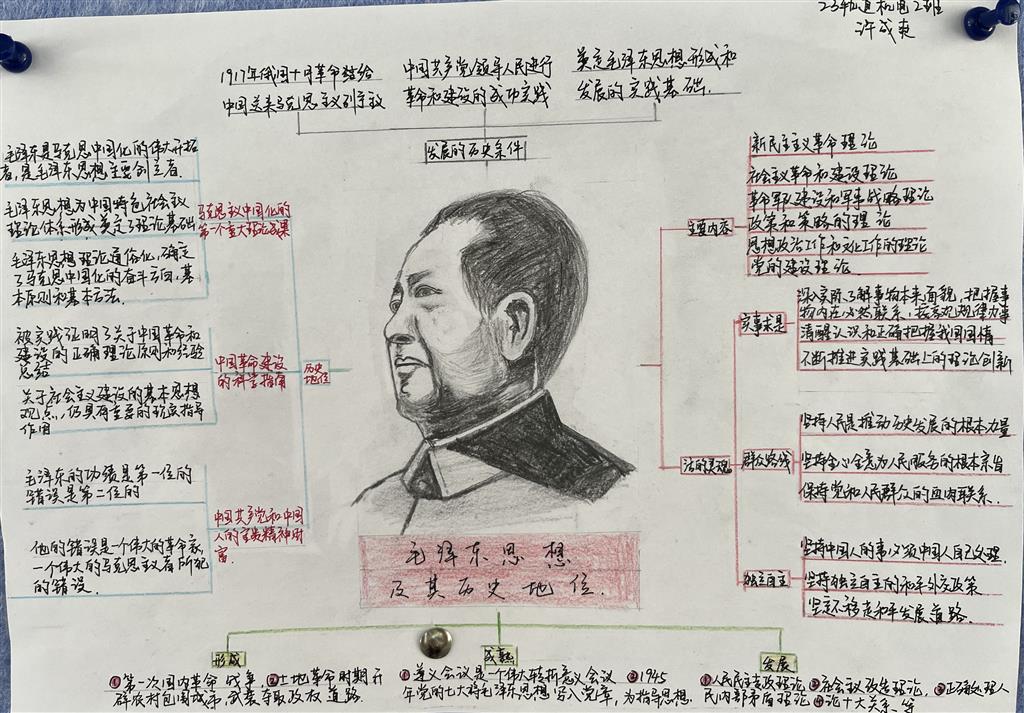 23轨道机电2班
许成爽
1917年俄国十月革命结给
中国送来马克思主义列宁放
中国共产党领导人民进行
革命和建设的成功实践
奠定毛泽东思想形成和
发展的实践基础.
发展的历史条件
毛泽东是马克思中国化的伟大开拓
者,是毛泽东思想主要创立者.
毛泽东思想为中国特色社会主义
理论体系形成奠定了理论基础
毛泽东思想理论通俗化,确定
了马克思中国化的奋斗方向,基
本原则和基本方法.
马克思主义中国化的
第一个重大理论成果
被实践证明了关于中国革命和
建设的正确理论原则和经验
总结
关于社会主义建设的基本思想
观点,仍具有重要的现实指导
作用
中国革命建设
的科学指南
毛泽东的功绩是第一位的
错误是第二位的
他的错误是一个伟大的革命家,
一个伟大的马克思主义者所犯
的错误.
中国共产党和中国
人的宝贵精神财
富.
历史
地位
主要内容
新民主主义革命理论
社会主义革命和建设理论
革命军队建设和军事战略理论
政策和策略的理论
思想政治工作和文化工作的理论
党的建设理论
活的灵魂
实事求是
深入实际了解事物本来面貌,把握事
物内在必然联系,按客观规律办事
清醒认识和正确把握我国国情
不断推进实践基础上的理论创新
群众路线
坚持人民是推动历史发展的根本力量
坚持全心全意为人民服务的根本宗旨
保持党和人民群众的血肉联系.
独立自主
坚持中国人的事必须中国人自己处理.
坚持独立自主的和平外交政策
坚定不移走和平发展道路.
毛泽东思想
及其历史地位.
形成
①第一次国内革命战争 ②土地革命时期开
辟农村包围城市,武装夺取政权道路.
成熟
①遵义会议是一个伟大转折意义会议 ②1945
年党的七大将毛泽东思想写入党章,为指导思想.
发展
①人民民主专政理论 ②社会主义改造理论, ③正确处理人
民内部矛盾理论 ④论十大关系、等